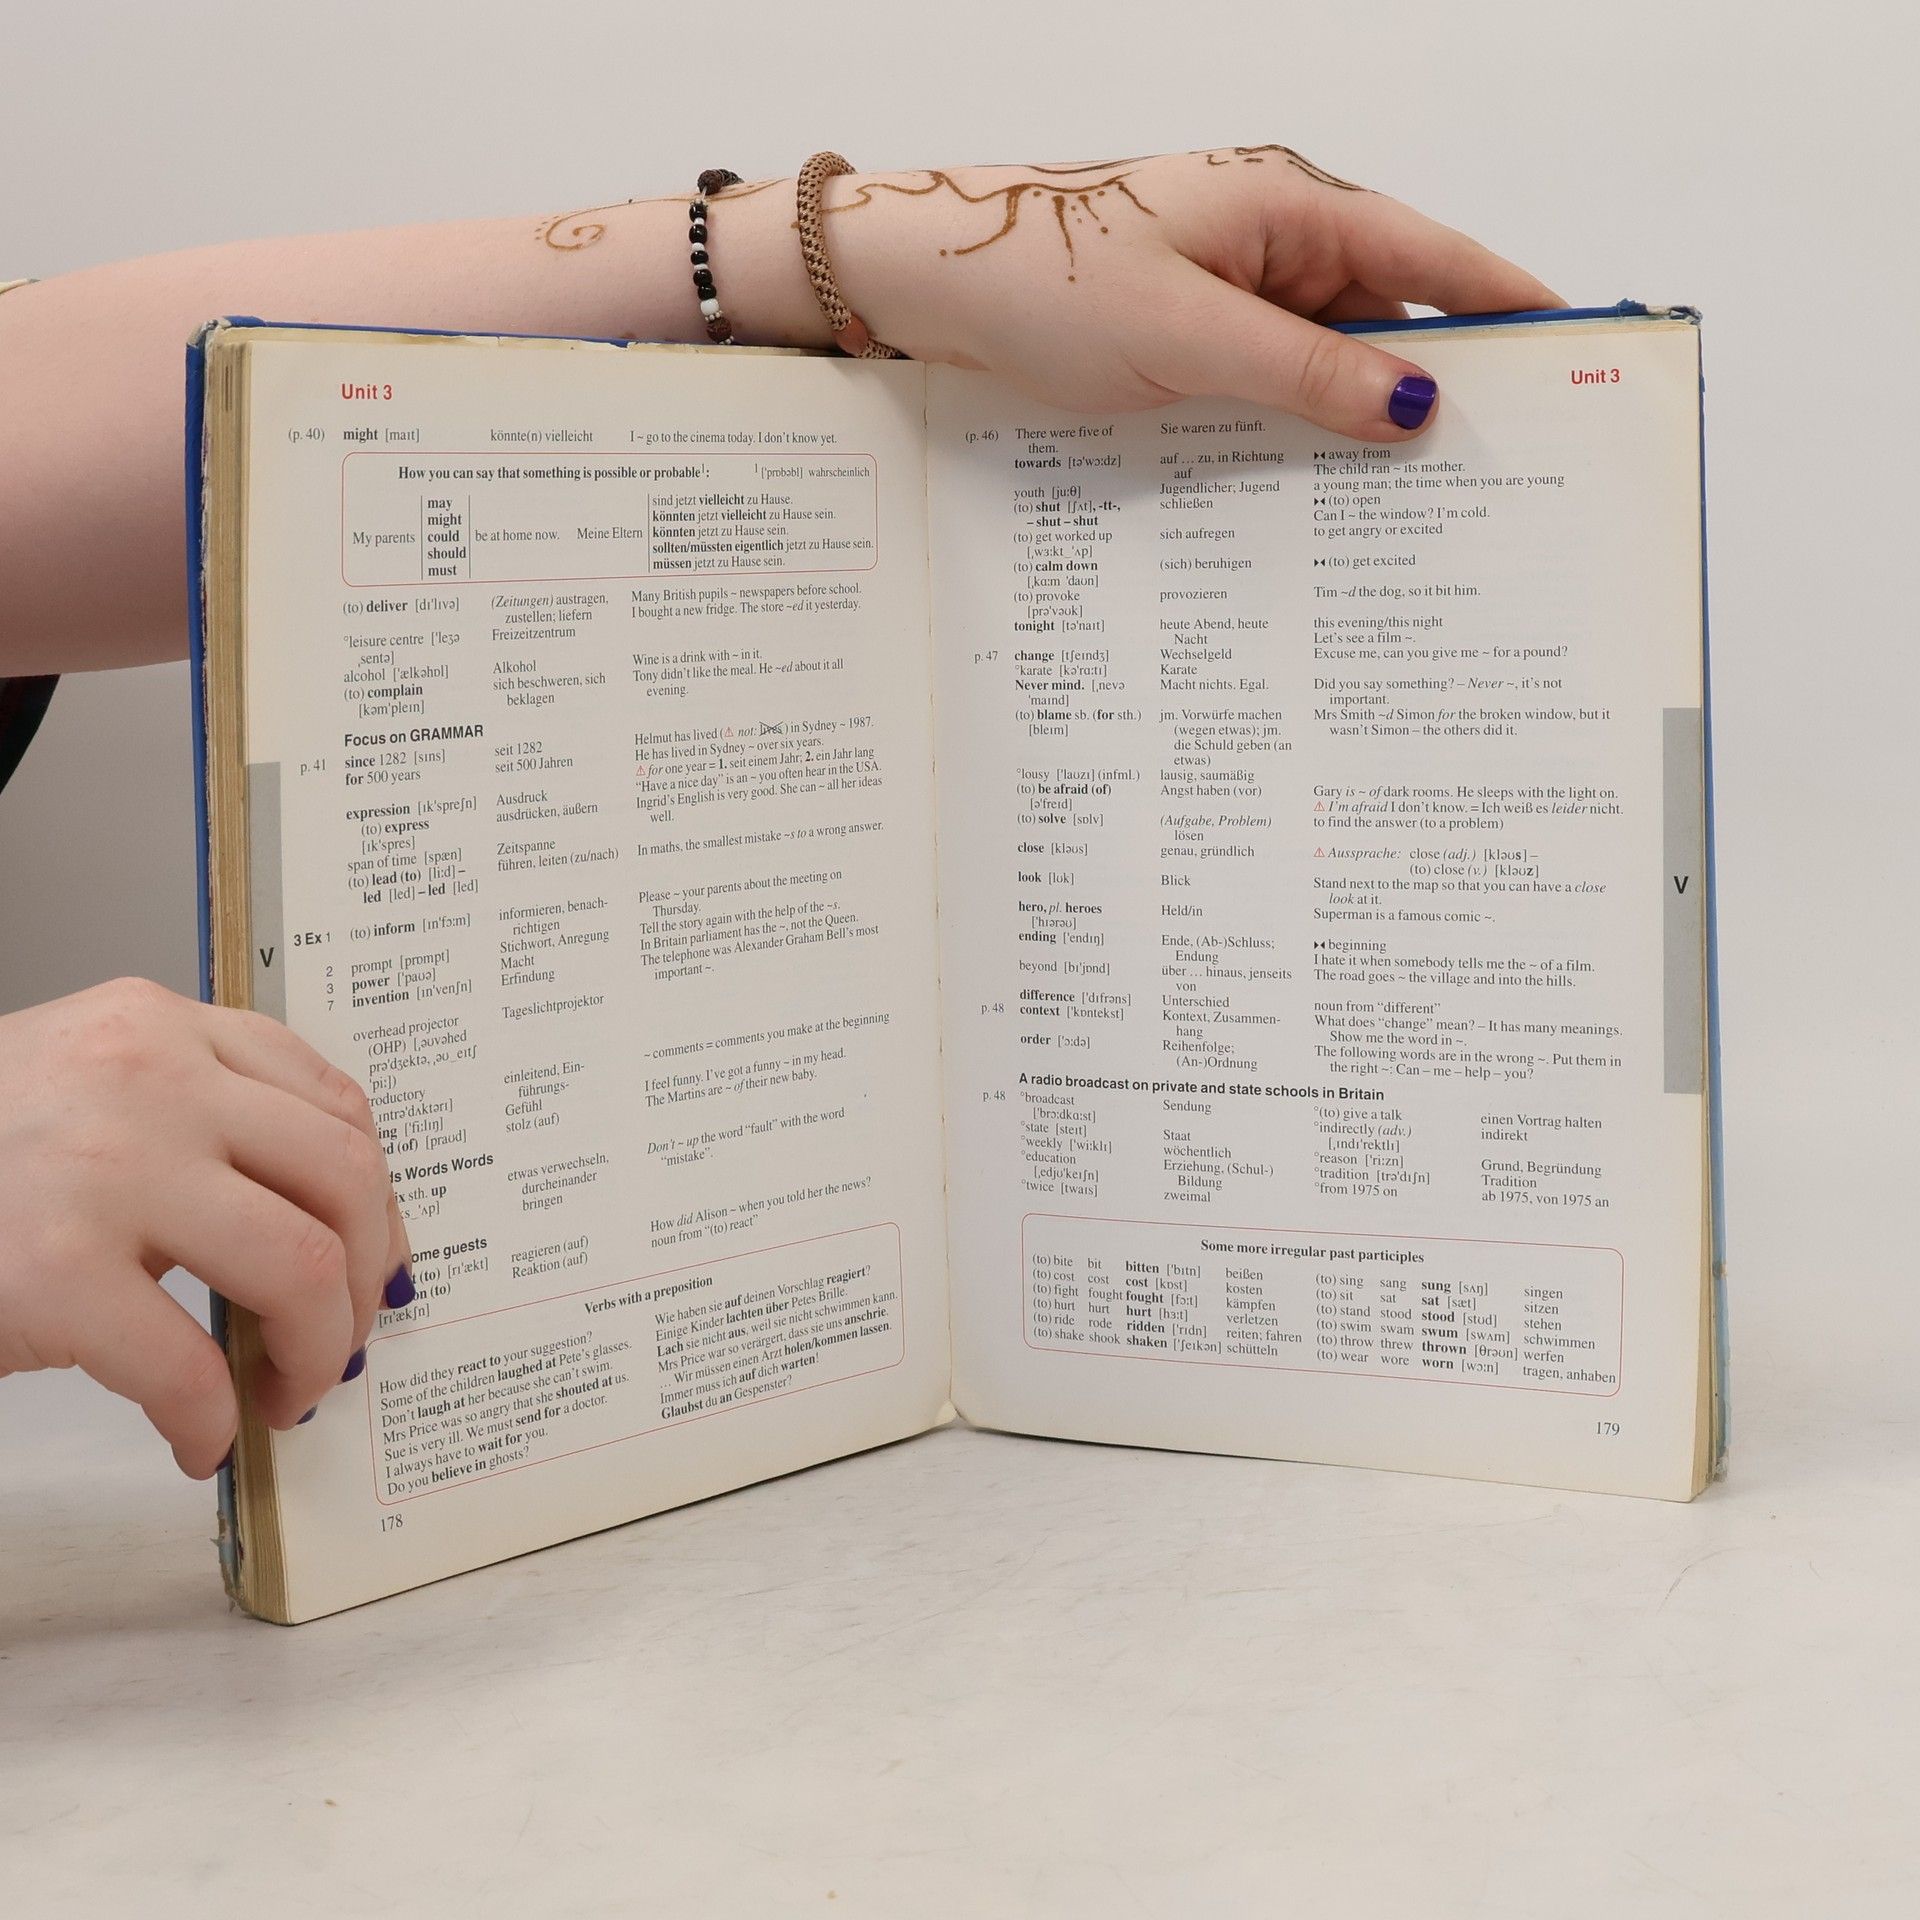 Unit 3
(p. 40) might [maɪt] könnte(n) vielleicht I ~ go to the cinema today. I don't know yet.
How you can say that something is possible or probable¹: ¹ ['prɒbəbl] wahrscheinlich
My parents may be at home now. Meine Eltern sind jetzt vielleicht zu Hause.
might könnten jetzt vielleicht zu Hause sein.
could könnten jetzt zu Hause sein.
should sollten/müssten eigentlich jetzt zu Hause sein.
must müssen jetzt zu Hause sein.
(to) deliver [dɪ'lɪvə] (Zeitungen) austragen, Many British pupils ~ newspapers before school.
zustellen; liefern I bought a new fridge. The store ~ed it yesterday.
°leisure centre ['leʒə Freizeitzentrum
ˌsentə]
alcohol ['ælkəhɒl] Alkohol Wine is a drink with ~ in it.
(to) complain sich beschweren, sich Tony didn't like the meal. He ~ed about it all
[kəm'pleɪn] beklagen evening.
Focus on GRAMMAR
p. 41 since 1282 [sɪns] seit 1282 Helmut has lived (⚠ not: lives) in Sydney ~ 1987.
for 500 years seit 500 Jahren He has lived in Sydney ~ over six years.
⚠ for one year = 1. seit einem Jahr; 2. ein Jahr lang
expression [ɪk'spreʃn] Ausdruck "Have a nice day" is an ~ you often hear in the USA.
(to) express ausdrücken, äußern Ingrid's English is very good. She can ~ all her ideas
[ɪk'spres] well.
span of time [spæn] Zeitspanne
(to) lead (to) [li:d] – führen, leiten (zu/nach) In maths, the smallest mistake ~s to a wrong answer.
led [led] – led [led]
3 Ex 1 (to) inform [ɪn'fɔ:m] informieren, benach- Please ~ your parents about the meeting on
richtigen Thursday.
2 prompt [prɒmpt] Stichwort, Anregung Tell the story again with the help of the ~s.
3 power ['paʊə] Macht In Britain parliament has the ~, not the Queen.
7 invention [ɪn'venʃn] Erfindung The telephone was Alexander Graham Bell's most
important ~.
overhead projector Tageslichtprojektor
(OHP) [ˌəʊvəhed
prə'dʒektə, ˌəʊ_eɪtʃ
'pi:])
roductory einleitend, Ein- ~ comments = comments you make at the beginning
ˌɪntrə'dʌktərɪ] führungs-
ing ['fi:lɪŋ] Gefühl I feel funny. I've got a funny ~ in my head.
d (of) [praʊd] stolz (auf) The Martins are ~ of their new baby.
ds Words Words
ix sth. up etwas verwechseln, Don't ~ up the word "fault" with the word
ks_'ʌp] durcheinander "mistake".
bringen
ome guests
t (to) [rɪ'ækt] reagieren (auf) How did Alison ~ when you told her the news?
on (to) Reaktion (auf) noun from "(to) react"
[rɪ'ækʃn]
Verbs with a preposition
How did they react to your suggestion? Wie haben sie auf deinen Vorschlag reagiert?
Some of the children laughed at Pete's glasses. Einige Kinder lachten über Petes Brille.
Don't laugh at her because she can't swim. Lach sie nicht aus, weil sie nicht schwimmen kann.
Mrs Price was so angry that she shouted at us. Mrs Price war so verärgert, dass sie uns anschrie.
Sue is very ill. We must send for a doctor. … Wir müssen einen Arzt holen/kommen lassen.
I always have to wait for you. Immer muss ich auf dich warten!
Do you believe in ghosts? Glaubst du an Gespenster?
178
V
Unit 3
(p. 46) There were five of Sie waren zu fünft.
them.
towards [tə'wɔ:dz] auf … zu, in Richtung ⧓ away from
auf The child ran ~ its mother.
youth [ju:θ] Jugendlicher; Jugend a young man; the time when you are young
(to) shut [ʃʌt], -tt-, schließen ⧓ (to) open
– shut – shut Can I ~ the window? I'm cold.
(to) get worked up sich aufregen to get angry or excited
[ˌwɜ:kt_'ʌp]
(to) calm down (sich) beruhigen ⧓ (to) get excited
[ˌkɑ:m 'daʊn]
(to) provoke provozieren Tim ~d the dog, so it bit him.
[prə'vəʊk]
tonight [tə'naɪt] heute Abend, heute this evening/this night
Nacht Let's see a film ~.
p. 47 change [tʃeɪndʒ] Wechselgeld Excuse me, can you give me ~ for a pound?
°karate [kə'rɑ:tɪ] Karate
Never mind. [ˌnevə Macht nichts. Egal. Did you say something? – Never ~, it's not
'maɪnd] important.
(to) blame sb. (for sth.) jm. Vorwürfe machen Mrs Smith ~d Simon for the broken window, but it
[bleɪm] (wegen etwas); jm. wasn't Simon – the others did it.
die Schuld geben (an
etwas)
°lousy ['laʊzɪ] (infml.) lausig, saumäßig
(to) be afraid (of) Angst haben (vor) Gary is ~ of dark rooms. He sleeps with the light on.
[ə'freɪd] ⚠ I'm afraid I don't know. = Ich weiß es leider nicht.
(to) solve [sɒlv] (Aufgabe, Problem) to find the answer (to a problem)
lösen
close [kləʊs] genau, gründlich ⚠ Aussprache: close (adj.) [kləʊs] –
(to) close (v.) [kləʊz]
look [lʊk] Blick Stand next to the map so that you can have a close
look at it.
hero, pl. heroes Held/in Superman is a famous comic ~.
['hɪərəʊ]
ending ['endɪŋ] Ende, (Ab-)Schluss; ⧓ beginning
Endung I hate it when somebody tells me the ~ of a film.
beyond [bɪ'jɒnd] über … hinaus, jenseits The road goes ~ the village and into the hills.
von
difference ['dɪfrəns] Unterschied noun from "different"
p. 48 context ['kɒntekst] Kontext, Zusammen- What does "change" mean? – It has many meanings.
hang Show me the word in ~.
order ['ɔ:də] Reihenfolge; The following words are in the wrong ~. Put them in
(An-)Ordnung the right ~: Can – me – help – you?
A radio broadcast on private and state schools in Britain
p. 48 °broadcast Sendung °(to) give a talk einen Vortrag halten
['brɔ:dkɑ:st] °indirectly (adv.) indirekt
°state [steɪt] Staat [ˌɪndɪ'rektlɪ]
°weekly ['wi:klɪ] wöchentlich °reason ['ri:zn] Grund, Begründung
°education Erziehung, (Schul-) °tradition [trə'dɪʃn] Tradition
[ˌedjʊ'keɪʃn] Bildung °from 1975 on ab 1975, von 1975 an
°twice [twaɪs] zweimal
Some more irregular past participles
(to) bite bit bitten ['bɪtn] beißen (to) sing sang sung [sʌŋ] singen
(to) cost cost cost [kɒst] kosten (to) sit sat sat [sæt] sitzen
(to) fight fought fought [fɔ:t] kämpfen (to) stand stood stood [stʊd] stehen
(to) hurt hurt hurt [hɜ:t] verletzen (to) swim swam swum [swʌm] schwimmen
(to) ride rode ridden ['rɪdn] reiten; fahren (to) throw threw thrown [θrəʊn] werfen
(to) shake shook shaken ['ʃeɪkən] schütteln (to) wear wore worn [wɔ:n] tragen, anhaben
179
V